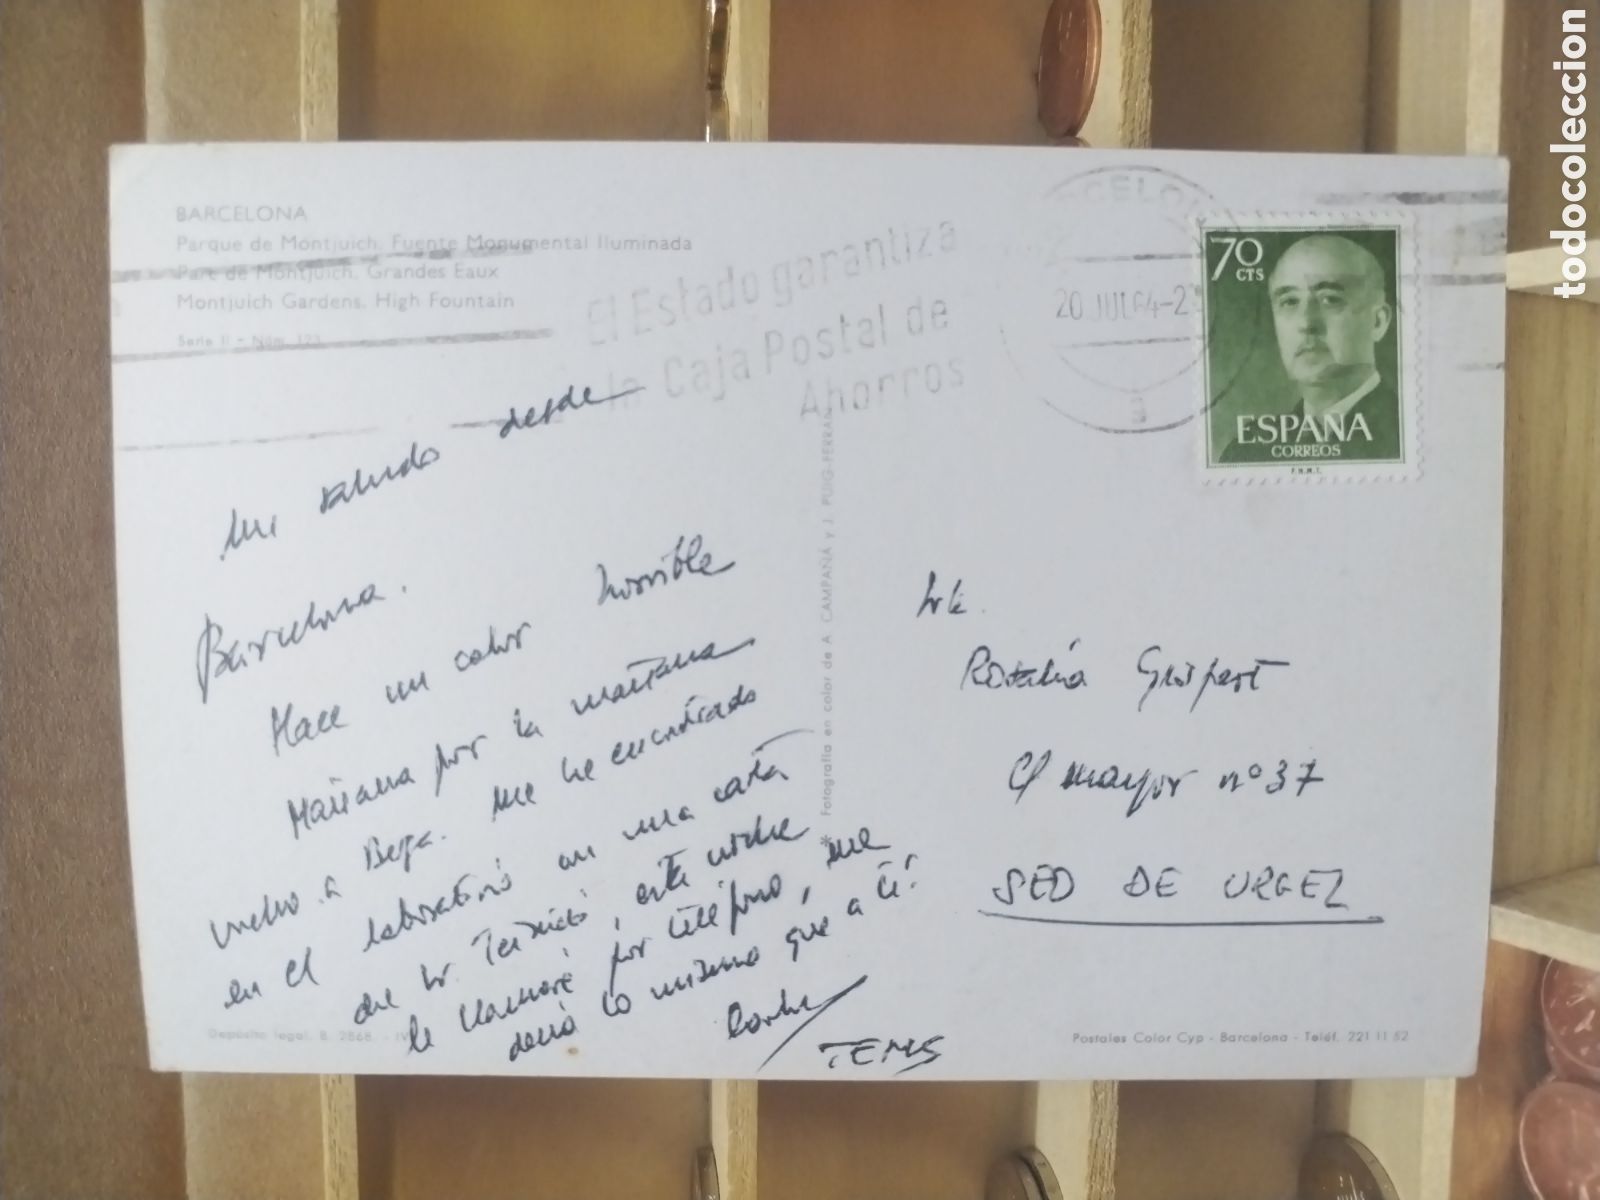 BARCELONA
Parque de Montjuich. Fuente Monumental Iluminada
Parc de Montjuich. Grandes Eaux
Montjuich Gardens. High Fountain
Serie II - Núm. 123
El Estado garantiza
la Caja Postal de
Ahorros
20 JUL 64-2
70
CTS
ESPAÑA
CORREOS
F.N.M.T.
Mi saludo desde
Barcelona.
Hace un calor horrible
Mañana por la mañana
vuelvo a Berga. Me he encontrado
en el laboratorio con una carta
del Sr. , esta noche
le llamaré por teléfono, me
dirá lo mismo que a ti.
TEMS
Depósito legal. B. 2868. - IV
* Fotografía en color de A. CAMPAÑÁ y J. PUIG-FERRÁN
Srta.
Rosalía Gispert
C/ mayor nº 37
SEO DE URGEL
Postales Color Cyp - Barcelona - Teléf. 221 11 52
todocoleccion